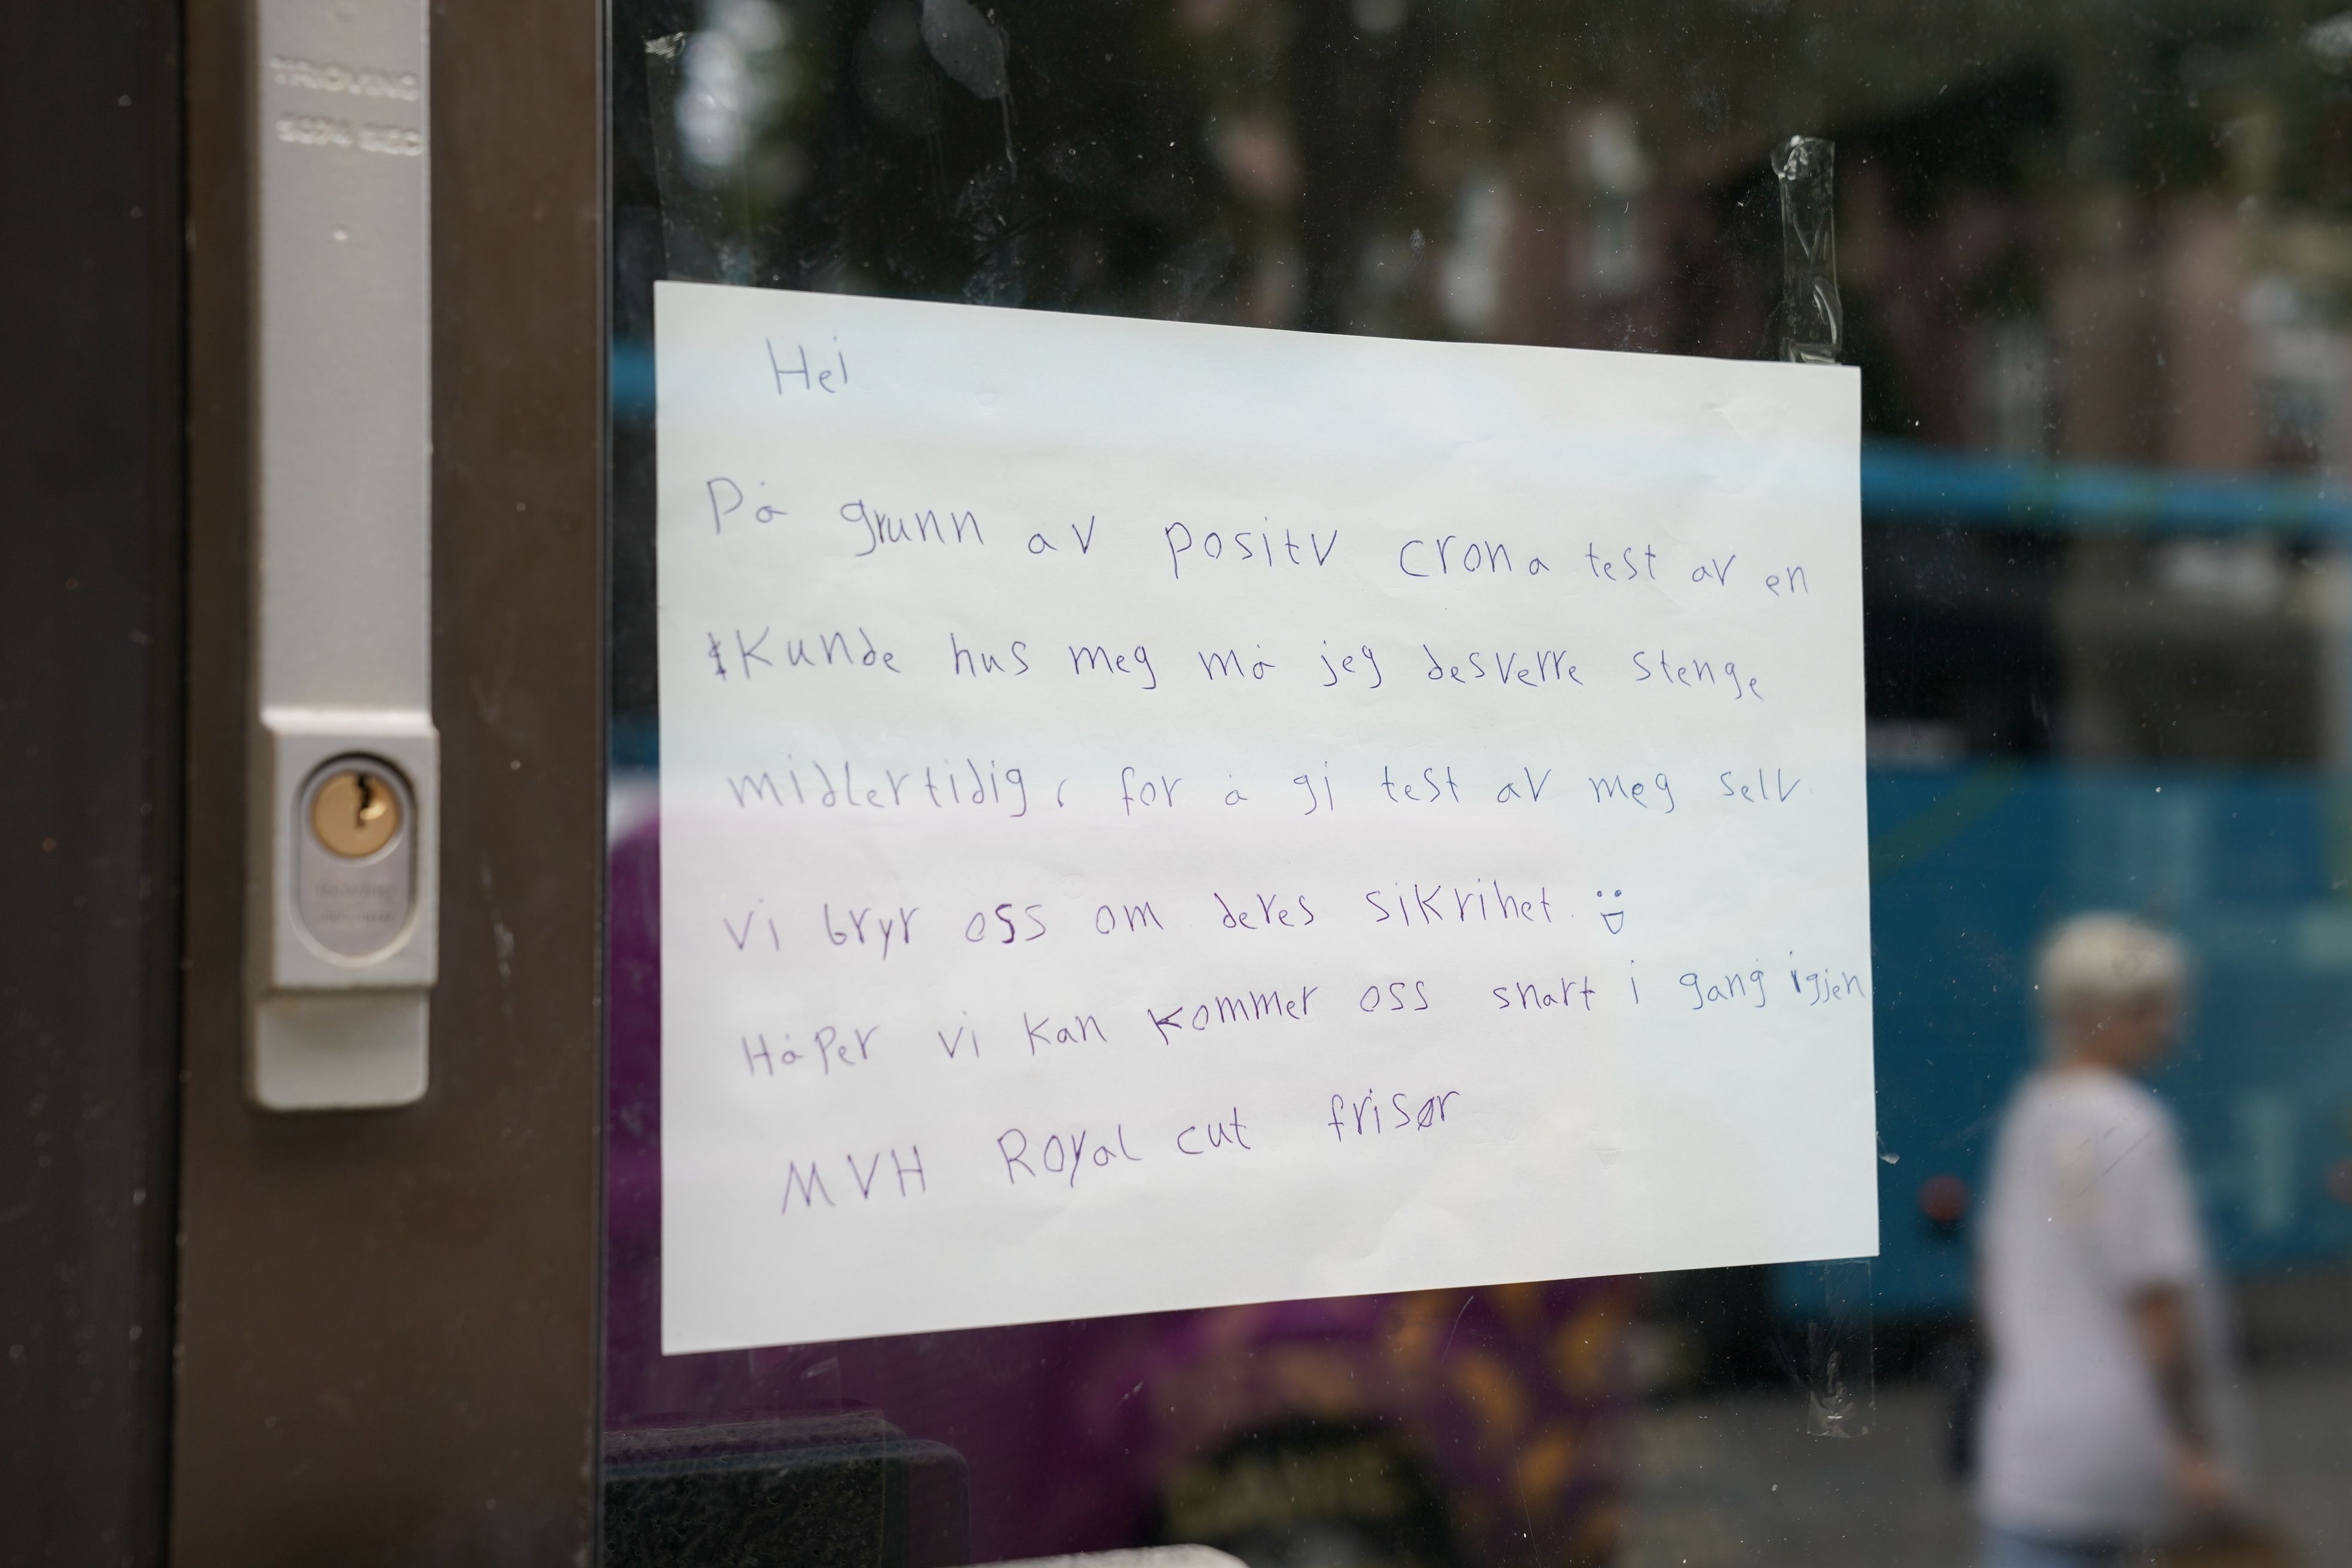 TRIOVING
Hei
På grunn av positv crona test av en
Kunde hus meg må jeg desverre stenge
midlertidig, for å gi test av meg selv
Vi bryr oss om deres sikrihet. :D
Håper vi kan kommer oss snart i gang igjen
MVH Royal cut frisør